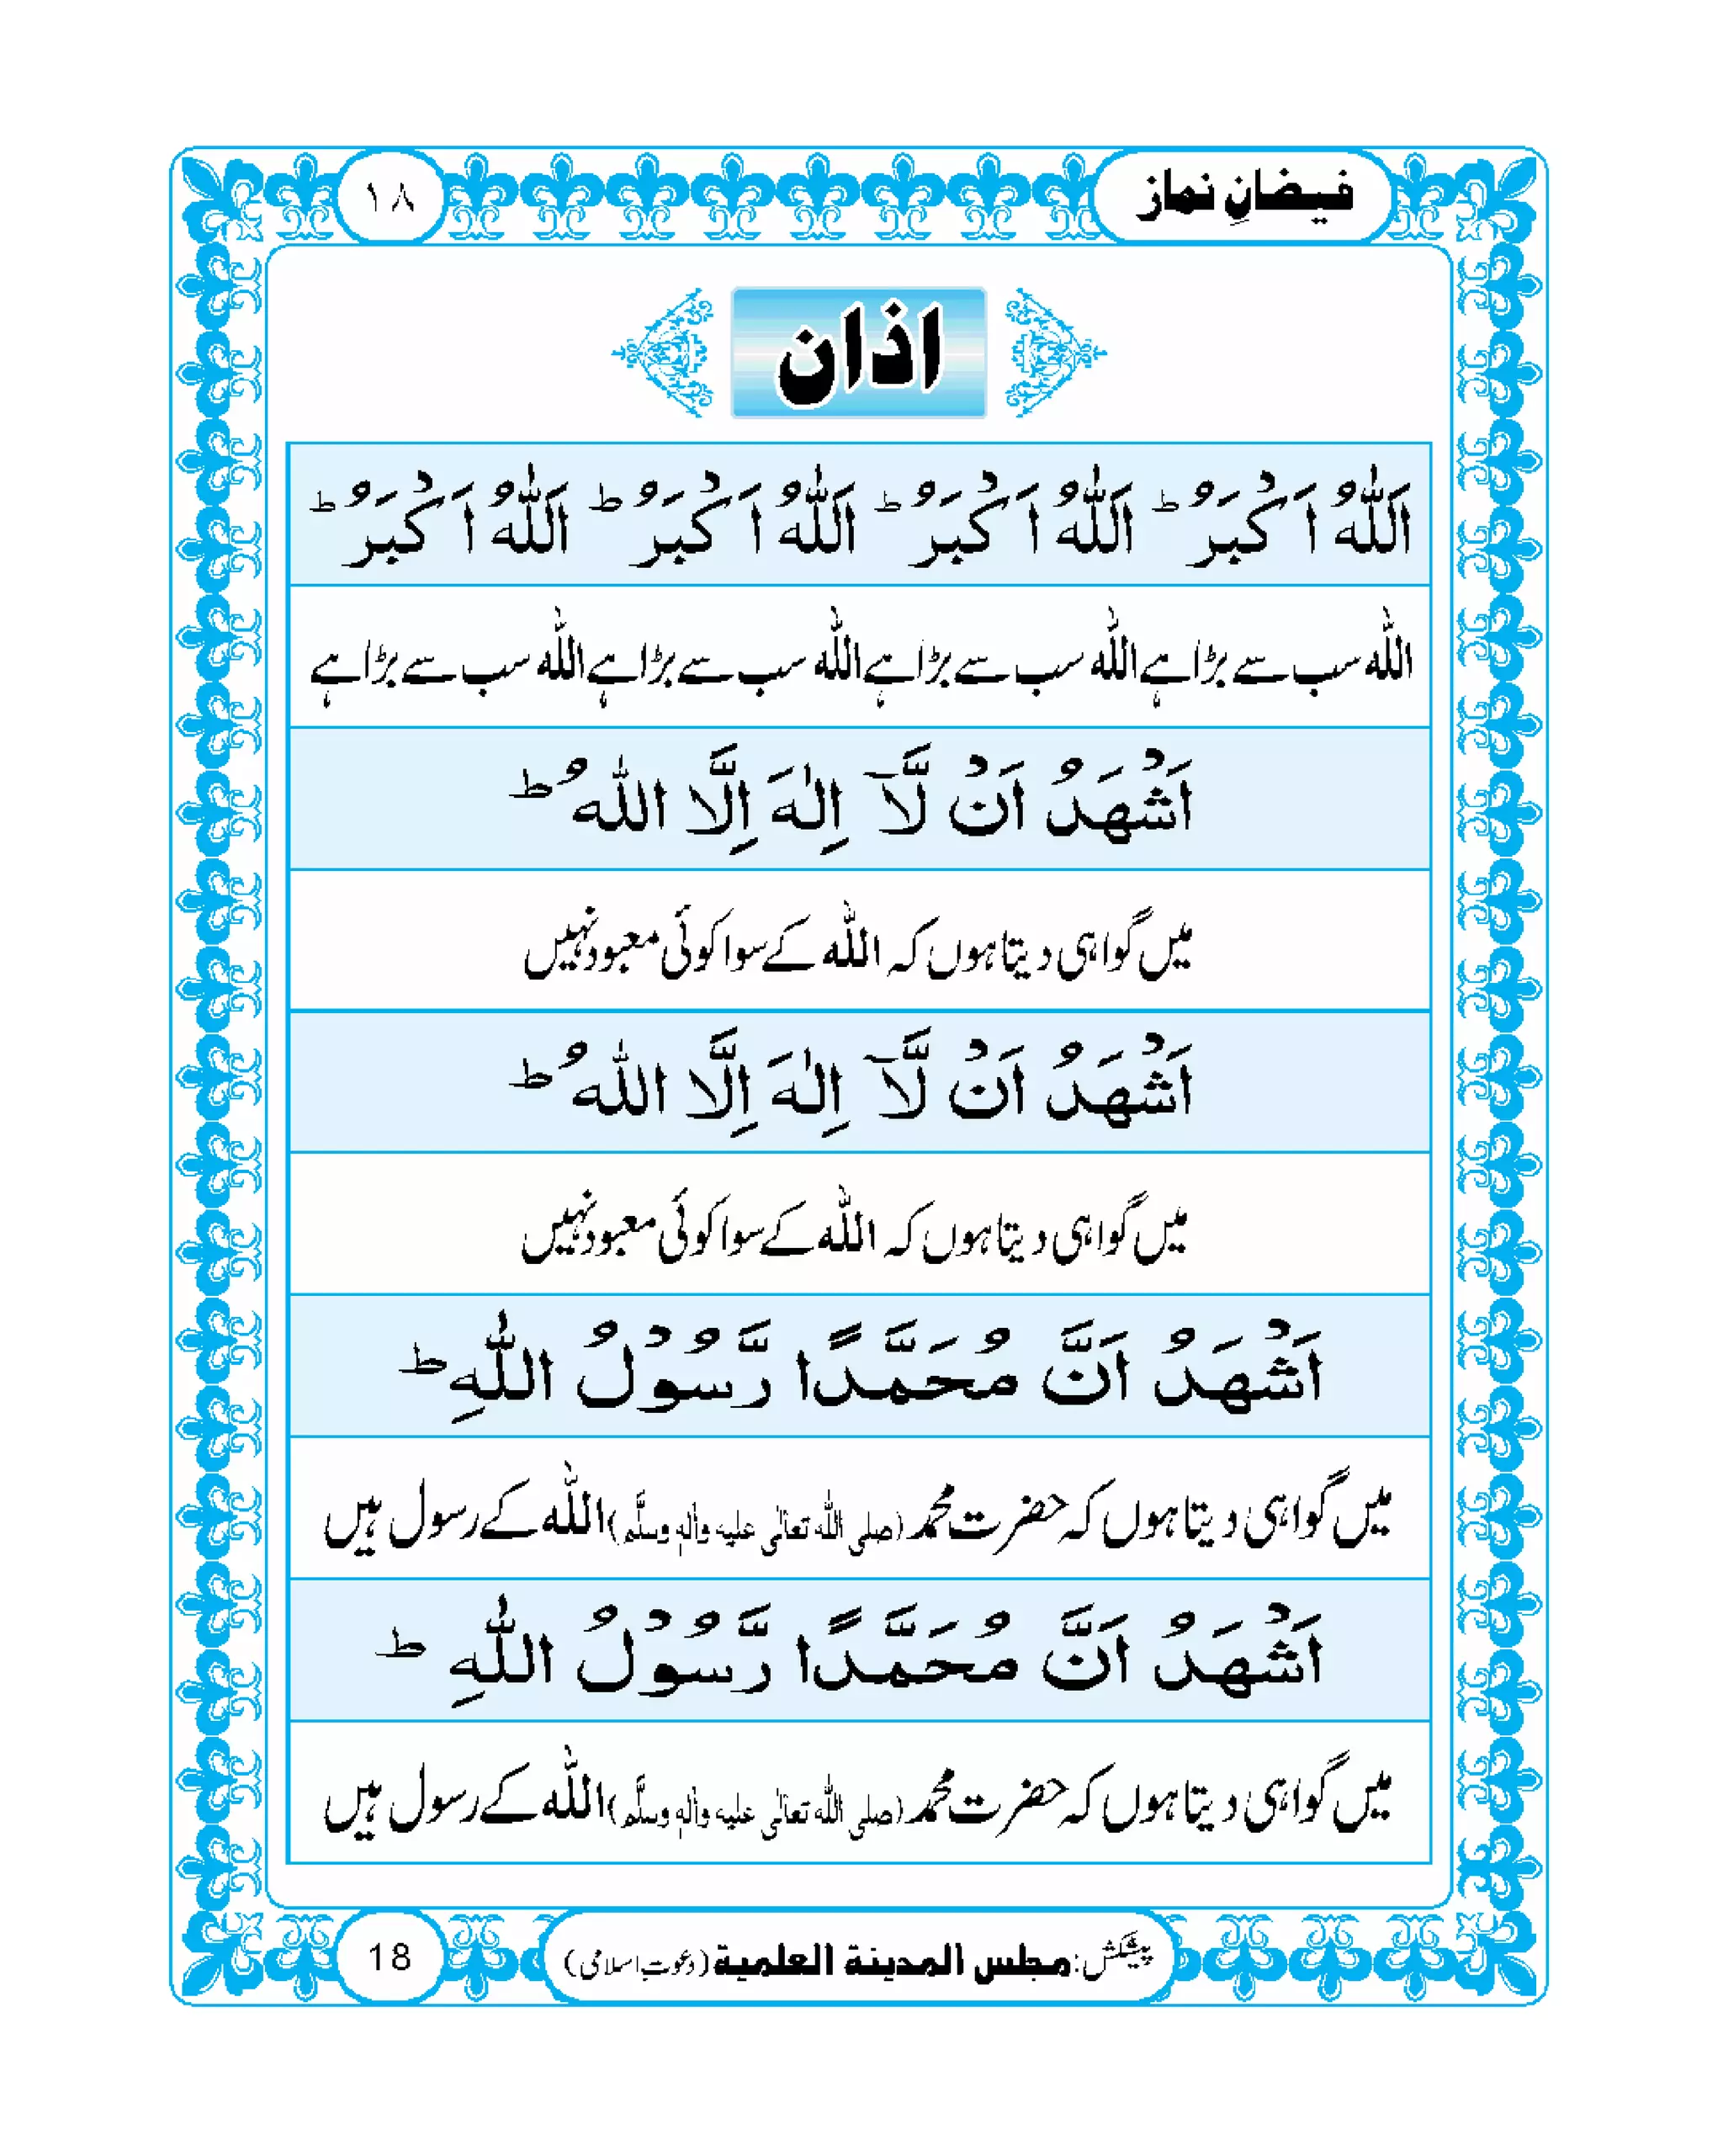 فیضانِ نماز ۱۸
اذان
اَللّٰهُ اَكْبَرُ ؕ اَللّٰهُ اَكْبَرُ ؕ اَللّٰهُ اَكْبَرُ ؕ اَللّٰهُ اَكْبَرُ ؕ
اللّٰہ سب سے بڑا ہے اللّٰہ سب سے بڑا ہے اللّٰہ سب سے بڑا ہے اللّٰہ سب سے بڑا ہے
اَشْهَدُ اَنْ لَّاۤ اِلٰهَ اِلَّا اللّٰهُ ؕ
میں گواہی دیتا ہوں کہ اللّٰہ کے سوا کوئی معبود نہیں
اَشْهَدُ اَنْ لَّاۤ اِلٰهَ اِلَّا اللّٰهُ ؕ
میں گواہی دیتا ہوں کہ اللّٰہ کے سوا کوئی معبود نہیں
اَشْهَدُ اَنَّ مُحَمَّدًا رَّسُوْلُ اللّٰهِ ؕ
میں گواہی دیتا ہوں کہ حضرت محمد (صلی اللّٰہ تعالٰی علیہ واٰلہٖ وسلَّم) اللّٰہ کے رسول ہیں
اَشْهَدُ اَنَّ مُحَمَّدًا رَّسُوْلُ اللّٰهِ ؕ
میں گواہی دیتا ہوں کہ حضرت محمد (صلی اللّٰہ تعالٰی علیہ واٰلہٖ وسلَّم) اللّٰہ کے رسول ہیں
پیشکش: مجلس المدینة العلمیة (دعوتِ اسلامی) 18